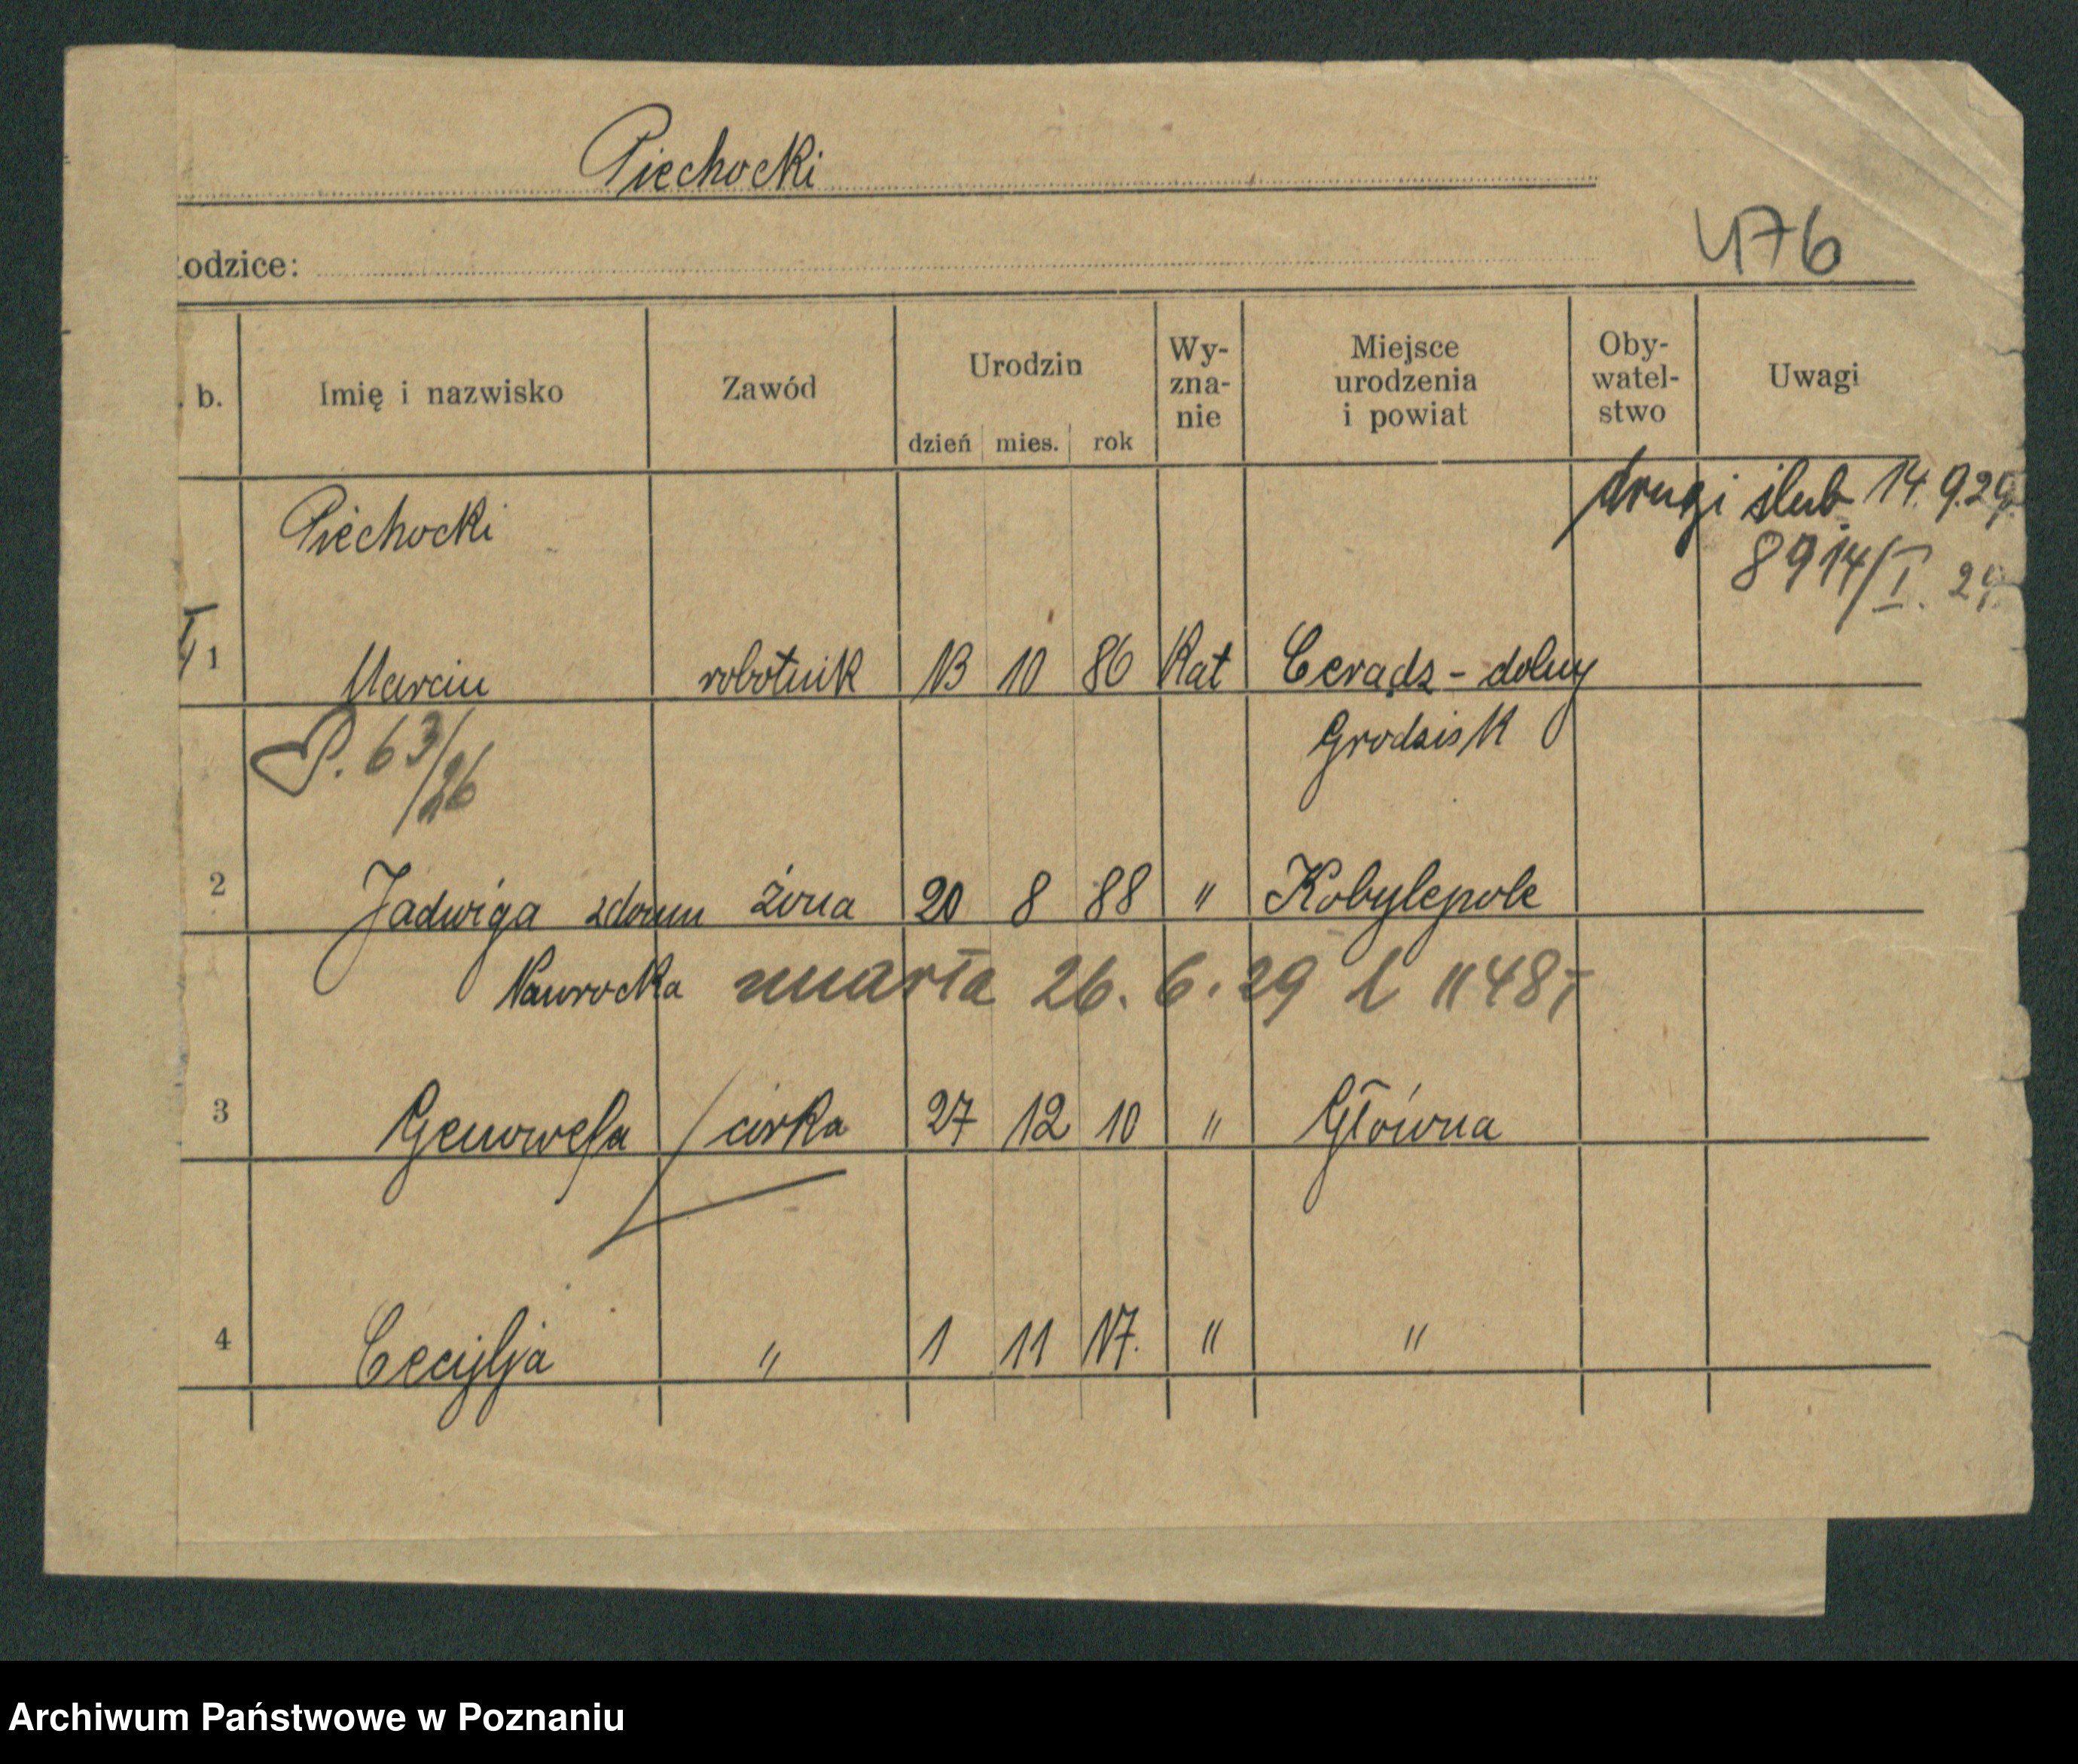 Piechocki
odzice:
476
b.
Imię i nazwisko
Zawód
Urodzin
dzień mies. rok
Wy-
zna-
nie
Miejsce
urodzenia
i powiat
Oby-
watel-
stwo
Uwagi
drugi ślub 14.9.29
8914/I. 29
Piechocki
1 Marcin robotnik 13 10 86 Kat Ceradz - dolny
Grodzisk
P. 63/26
2 Jadwiga zdomu żona 20 8 88 " Kobylepole
Nawrocka zmarła 26. 6. 29
3 Genowefa córka 27 12 10 " Główna
4 Cecylja " 1 11 17. " "
Archiwum Państwowe w Poznaniu